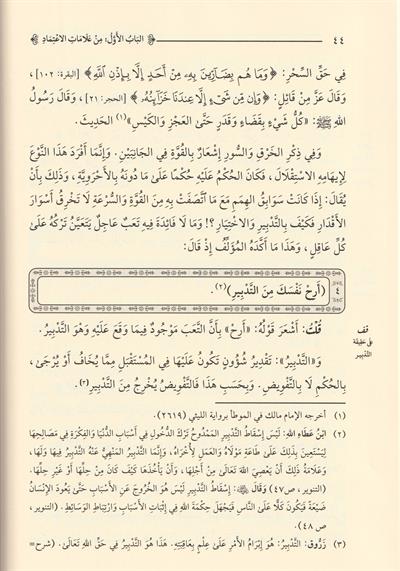 ٤٤ ﴿ البَابُ الأَوَّلُ: مِنْ عَلَامَاتِ الِاعْتِمَادِ ﴾
فِي حَقِّ السِّحْرِ: ﴿وَمَا هُم بِضَآرِّينَ بِهِۦ مِنْ أَحَدٍ إِلَّا بِإِذْنِ ٱللَّهِ﴾ [البقرة: ١٠٢]،
وَقَالَ عَزَّ مِنْ قَائِلٍ: ﴿وَإِن مِّن شَىْءٍ إِلَّا عِندَنَا خَزَآئِنُهُۥ﴾ [الحجر: ٢١]، وَقَالَ رَسُولُ
اللهِ ﷺ: «كُلُّ شَيْءٍ بِقَضَاءٍ وَقَدَرٍ حَتَّى العَجْزِ وَالكَيْسِ»(١) الحَدِيثَ.
وَفِي ذِكْرِ الخَرْقِ وَالسُّورِ إِشْعَارٌ بِالقُوَّةِ فِي الجَانِبَيْنِ. وَإِنَّمَا أَفْرَدَ هَذَا النَّوْعَ
لِإِيهَامِهِ الِاسْتِقْلَالَ، فَكَانَ الحُكْمُ عَلَيْهِ حُكْمًا عَلَى مَا دُونَهُ بِالأَحْرَوِيَّةِ، وَذَلِكَ بِأَنْ
يُقَالَ: إِذَا كَانَتْ سَوَابِقُ الهِمَمِ مَعَ مَا اتَّصَفَتْ بِهِ مِنَ القُوَّةِ وَالسُّرْعَةِ لَا تَخْرِقُ أَسْوَارَ
الأَقْدَارِ فَكَيْفَ بِالتَّدْبِيرِ وَالِاخْتِيَارِ؟! وَمَا لَا فَائِدَةَ فِيهِ تَعَبٌ عَاجِلٌ يَتَعَيَّنُ تَرْكُهُ عَلَى
كُلِّ عَاقِلٍ، وَهَذَا مَا أَكَّدَهُ المُؤَلِّفُ إِذْ قَالَ:
٤ (أَرِحْ نَفْسَكَ مِنَ التَّدْبِيرِ)(٢).
قُلْتُ: أَشْعَرَ قَوْلُهُ: «أَرِحْ» بِأَنَّ التَّعَبَ مَوْجُودٌ فِيمَا وَقَعَ عَلَيْهِ وَهُوَ التَّدْبِيرُ.
قف
على حقيقة
التدبير
وَ«التَّدْبِيرُ»: تَقْدِيرُ شُؤُونٍ تَكُونُ عَلَيْهَا فِي المُسْتَقْبَلِ مِمَّا يُخَافُ أَوْ يُرْجَى،
بِالحُكْمِ لَا بِالتَّفْوِيضِ. وَبِحَسَبِ هَذَا فَالتَّفْوِيضُ يُخْرِجُ مِنَ التَّدْبِيرِ(٣).
(١) أخرجه الإمام مالك في الموطأ برواية الليثي (٢٦١٩).
(٢) ابْنُ عَطَاءِ اللهِ: لَيْسَ إِسْقَاطُ التَّدْبِيرِ المَمْدُوحُ تَرْكَ الدُّخُولِ فِي أَسْبَابِ الدُّنْيَا وَالفِكْرَةِ فِي مَصَالِحِهَا
لِيَسْتَعِينَ بِذَلِكَ عَلَى طَاعَةِ مَوْلَاهُ وَالعَمَلِ لِأُخْرَاهُ، وَإِنَّمَا التَّدْبِيرُ المَنْهِيُّ عَنْهُ التَّدْبِيرُ فِيهَا وَلَهَا،
وَعَلَامَةُ ذَلِكَ أَنْ يَعْصِيَ اللهَ تَعَالَى مِنْ أَجْلِهَا، وَأَنْ يَأْخُذَهَا كَيْفَ كَانَ مِنْ حِلِّهَا أَوْ غَيْرِ حِلِّهَا.
(التنوير، ص٤٧) وَقَالَ: إِسْقَاطُ التَّدْبِيرِ لَيْسَ هُوَ الخُرُوجَ عَنِ الأَسْبَابِ حَتَّى يَعُودَ الإِنْسَانُ
ضَيْعَةً فَيَكُونَ كَلًّا عَلَى النَّاسِ فَيَجْهَلَ حِكْمَةَ اللهِ فِي إِثْبَاتِ الأَسْبَابِ وَارْتِبَاطِ الوَسَائِطِ. (التنوير،
ص ٤٨).
(٣) زَرُّوق: التَّدْبِيرُ: هُوَ إِبْرَامُ الأَمْرِ عَلَى عِلْمٍ بِعَاقِبَتِهِ. هَذَا هُوَ التَّدْبِيرُ فِي حَقِّ اللهِ تَعَالَى. (شرح=